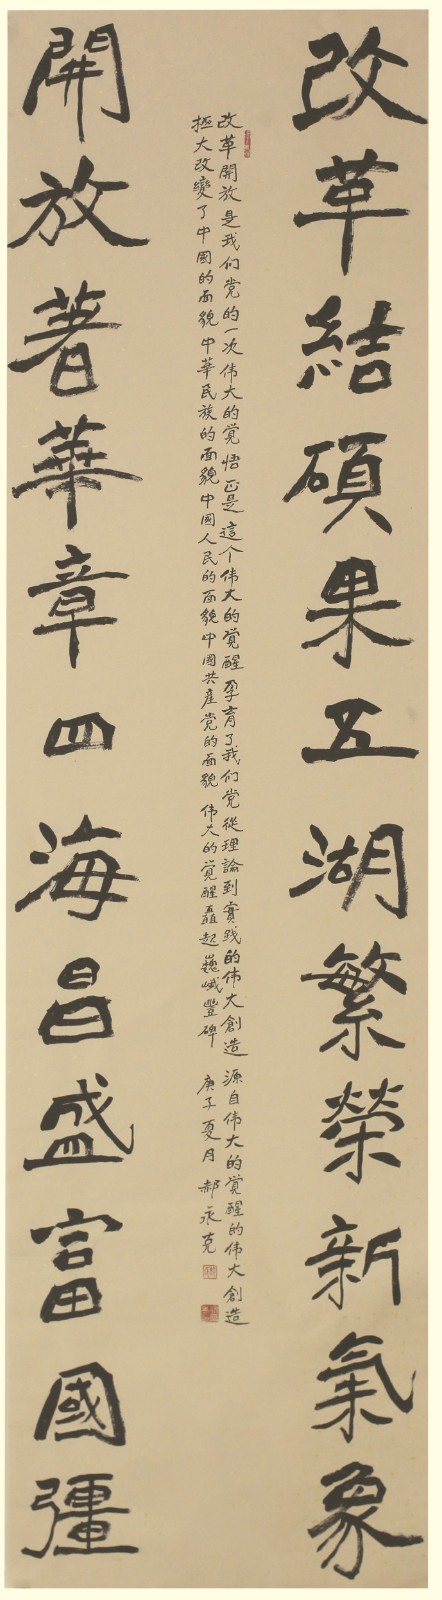 改革結碩果五湖繁榮新氣象
改革開放是我们党的一次伟大的覚悟正是這个伟大的覚醒孕育了我们党從理論到實践的伟大創造源自伟大的覚醒的伟大創造
極大改變了中國的面貌中華民族的面貌中國人民的面貌中國共産党的面貌伟大的覚醒矗起巍峨豐碑庚子夏月郝永克
開放著華章四海昌盛富國彊